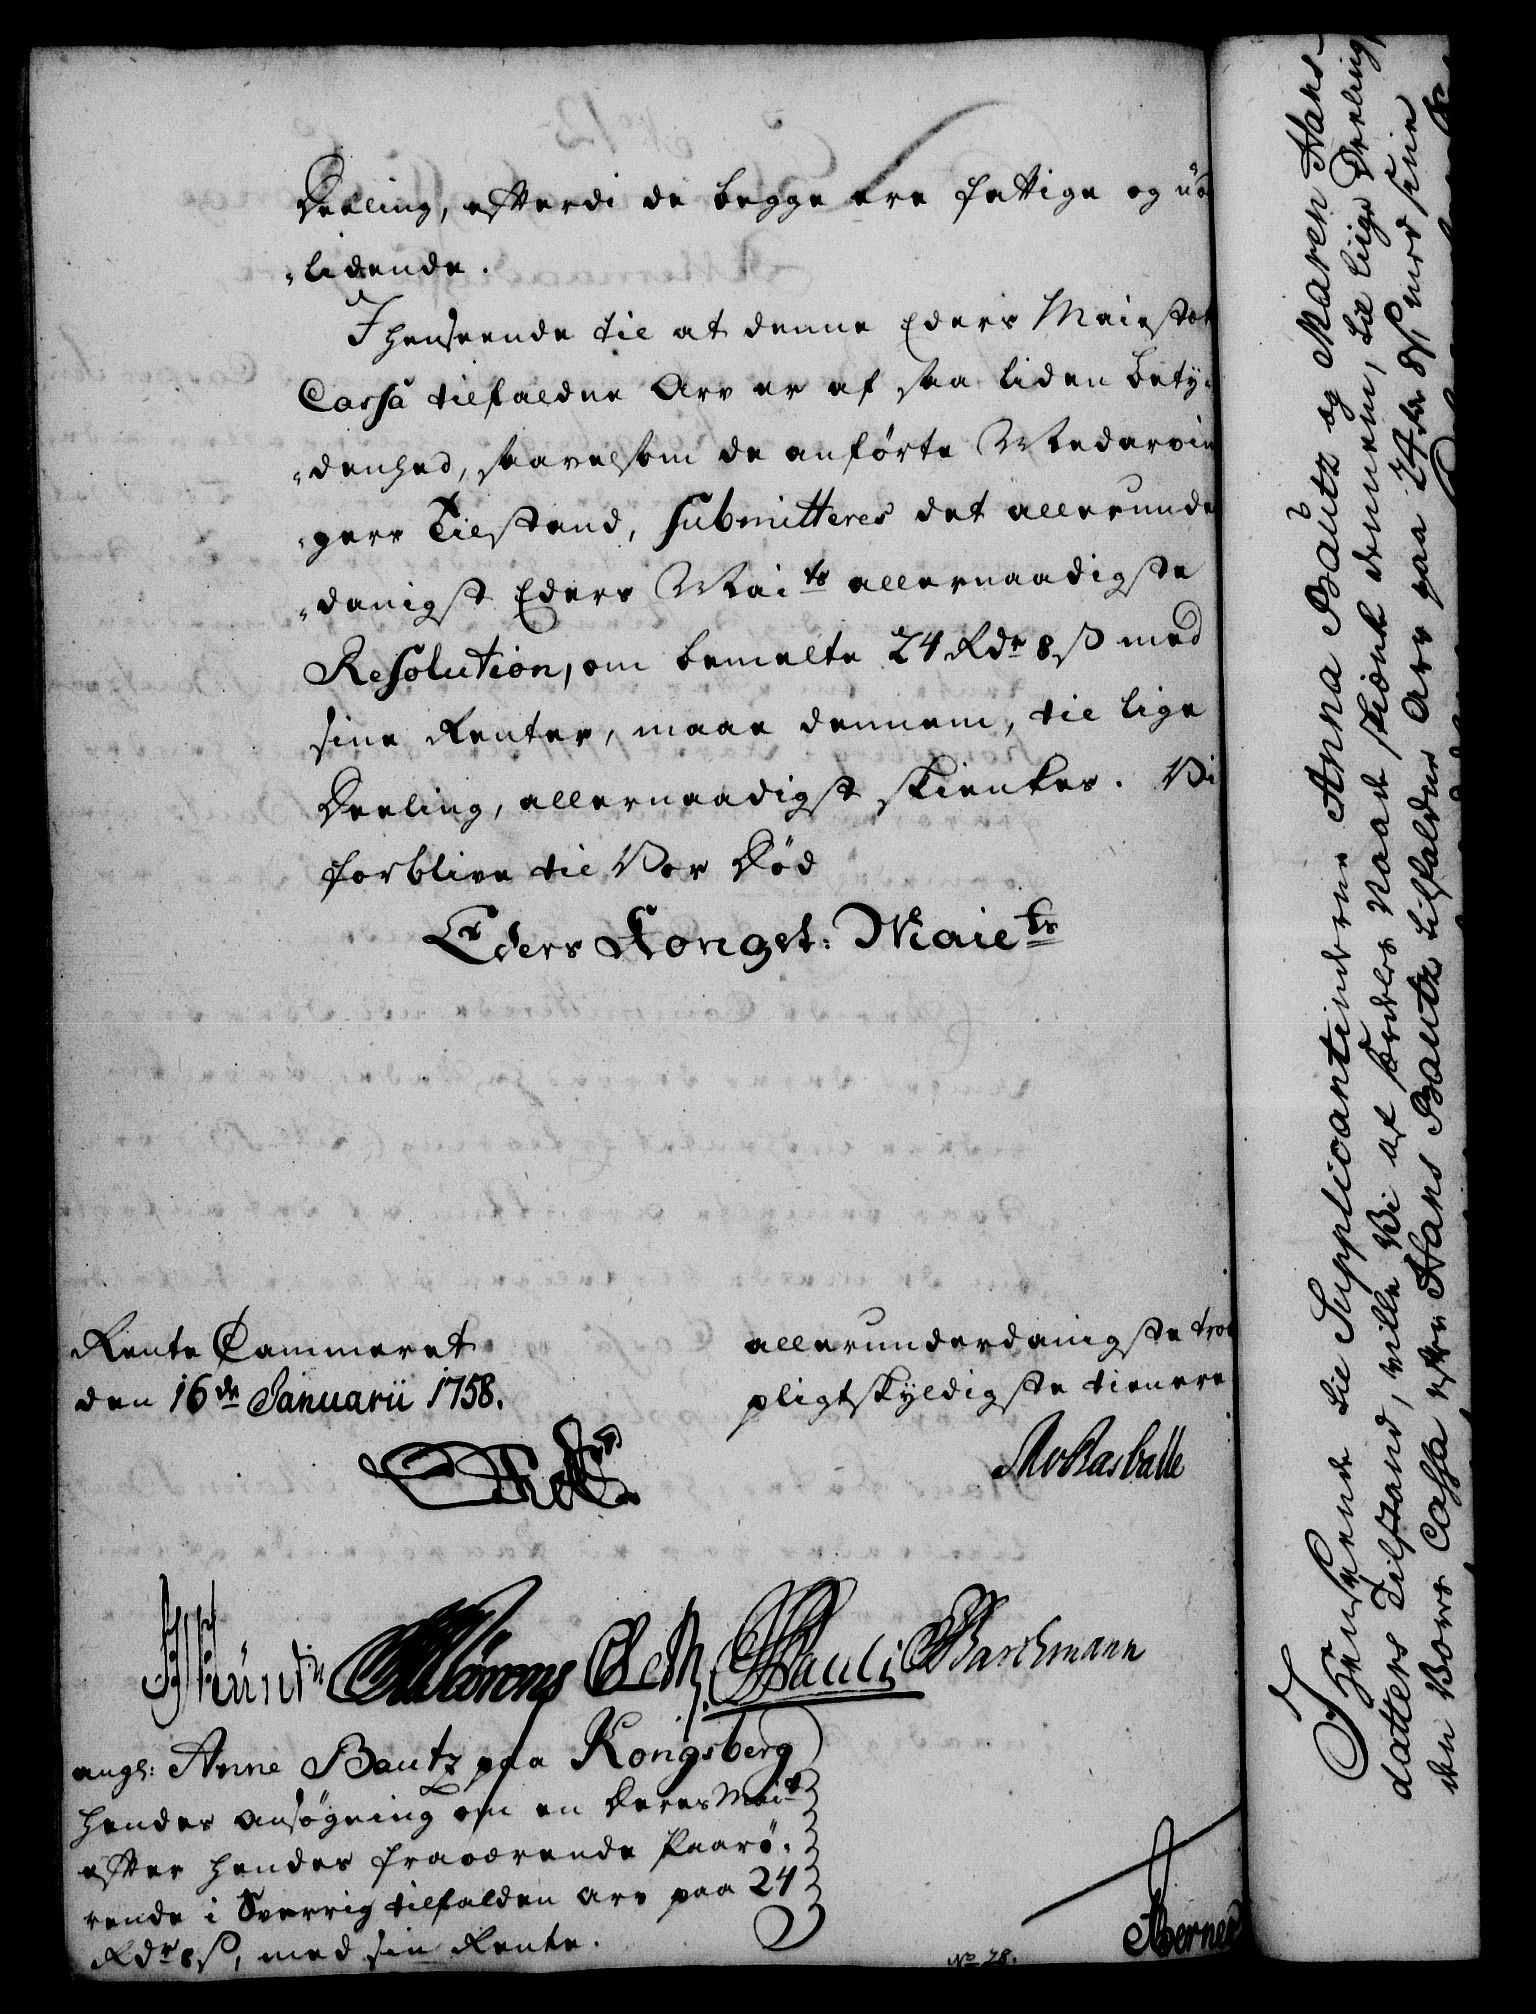 Deeling, efterdi de begge ere fattige og ud
„lidende.
I henseende til at denne Eders Maiestets
Cassa tilfaldne Arv er af saa liden bety„
„denhed, saavelsom de anførte Medarvin
„gers Tilstand, submitteres det allerunder
„danigst Eders Mai.ts allernaadigste
Resolution, om bemelte 24 Rdr 8 ß med
sine Renter, maae dennem, til lige
Deeling, allernaadigst skienkes. Vi
forblive til Vor Død
Eders Kongel: Maie.ts
Rente Cammeret
den 16de Januarii 1758.
allerunderdanigste troe
pligtskyldigste tienere
Pauli Barchmann
angl: Anne Bautz paa Kongsberg
hendes ansøgning om en Deres Mai.ts
efter hendes fraværende Paarø„
rende i Sverrig tilfalden arv paa 24
Rdr 8 ß, med sin Rente.
No 28.
I henseende til Supplicantinderne Anna Bautz og Maren Hans„
datters Tilstand, ville Vi af særdeles Naade skienk dennem, til liige Deeling,
den Vores Cassa efter Hans Bautz tilfaldne Arv paa 24 Rdr 8 ß, med sine